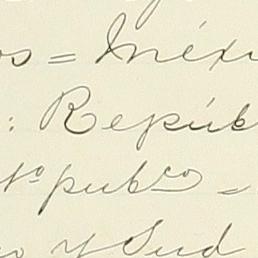 os = Méxi
: Repúb
to pubco =
o y Sud